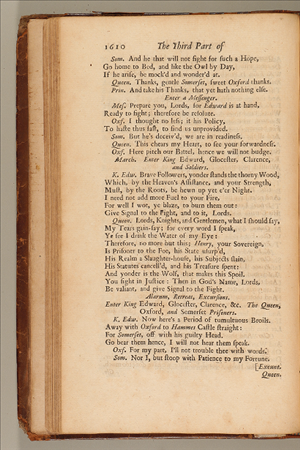 1610 The Third Part of
Som. And he that will not fight for such a Hope,
Go home to Bed, and like the Owl by Day,
If he arise, be mock'd and wonder'd at.
Queen. Thanks, gentle Somerset, sweet Oxford thanks.
Prin. And take his Thanks, that yet hath nothing else.
Enter a Messenger.
Mes. Prepare you, Lords, for Edward is at hand,
Ready to fight; therefore be resolute.
Oxf. I thought no less; it his Policy,
To haste thus fast, to find us unprovided.
Som. But he's deceiv'd, we are in readiness.
Queen. This chears my Heart, to see your forwardness.
Oxf. Here pitch our Battel, hence we will not budge.
March. Enter King Edward, Glocester, Clarence,
and Soldiers.
K. Edw. Brave Followers, yonder stands the thorny Wood,
Which, by the Heaven's Assistance, and your Strength,
Must, by the Roots, be hewn up yet e'er Night.
I need not add more Fuel to your Fire,
For well I wot, ye blaze, to burn them out:
Give Signal to the Fight, and to it, Lords.
Queen. Lords, Knights, and Gentlemen, what I should say,
My Tears gain-say; for every word I speak,
Ye see I drink the Water of my Eye:
Therefore, no more but this; Henry, your Sovereign,
Is Prisoner to the Foe, his State usurp'd,
His Realm a Slaughter-house, his Subjects slain,
His Statutes cancell'd, and his Treasure spent:
And yonder is the Wolf, that makes this Spoil.
You fight in Justice: Then in God's Name, Lords,
Be valiant, and give Signal to the Fight.
Alarum, Retreat, Excursions.
Enter King Edward, Glocester, Clarence, &c. The Queen,
Oxford, and Somerset Prisoners.
K. Edw. Now here's a Period of tumultuous Broils.
Away with Oxford to Hammes Castle straight:
For Somerset, off with his guilty Head.
Go bear them hence, I will not hear them speak.
Oxf. For my part, I'll not trouble thee with words.
Som. Nor I, but stoop with Patience to my Fortune.
[Exeunt.
Queen.